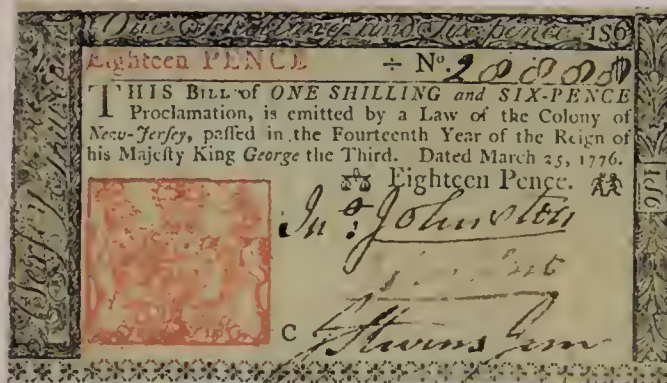 One Shilling and Six-pence 1s6
Eighteen PENCE ÷ No. 28888
THIS BILL of ONE SHILLING and SIX-PENCE
Proclamation, is emitted by a Law of the Colony of
New-Jerſey, paſſed in the Fourteenth Year of the Reign of
his Majeſty King George the Third. Dated March 25, 1776.
Eighteen Pence.
Jno: Johnston
C Stevens Jun
Jerſey
1s6